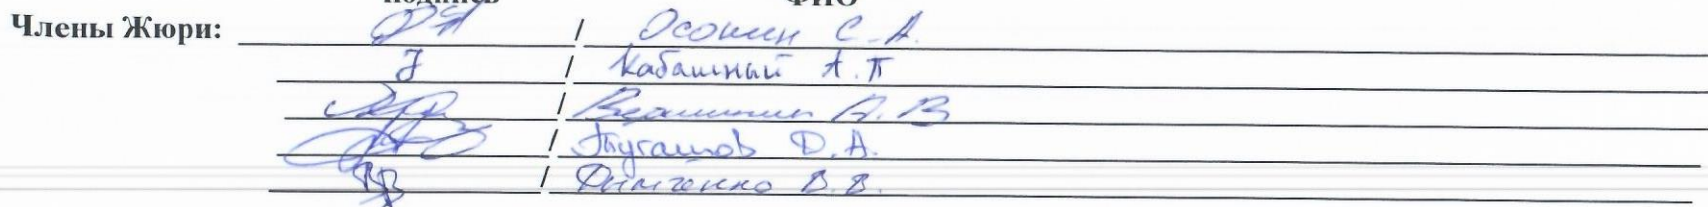 подпись ФИО
Члены Жюри: / Осокин С.А.
/ Кабашный А.П
/ А.В
/ Тугашов Д.А.
/ Димченко В.В.